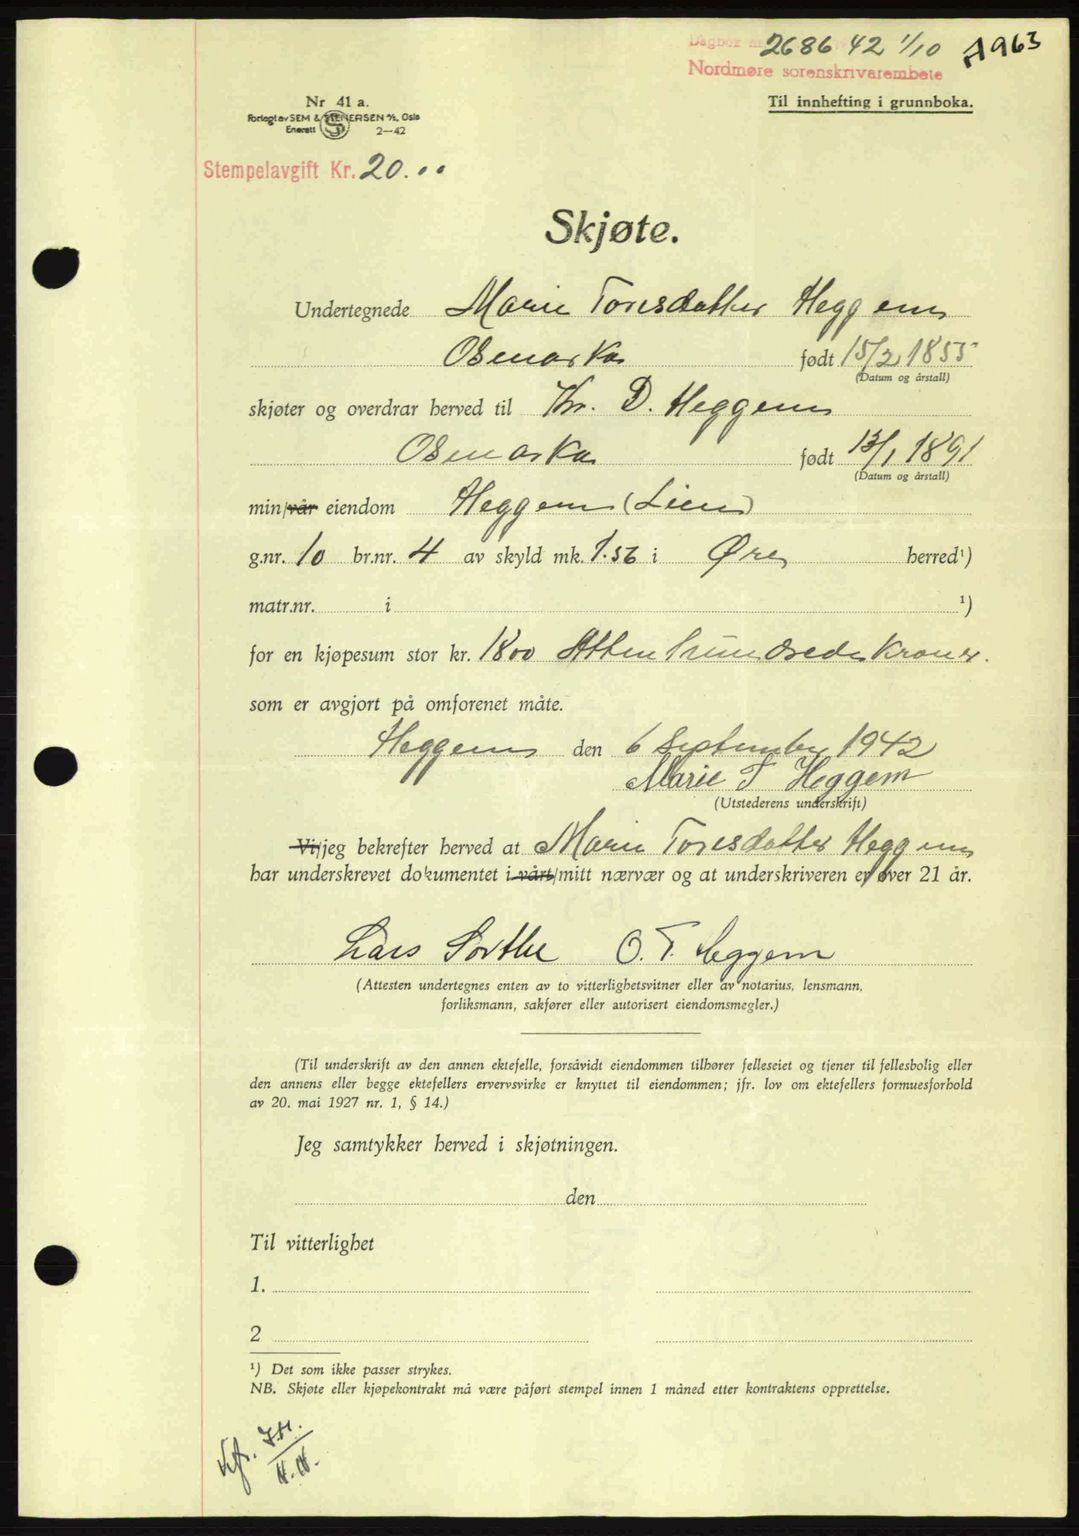 Dagbok nr. 2686 42 1/10 A963
Nordmøre sorenskrivarembete
Til innhefting i grunnboka.
Nr 41 a.
Forlagt av SEM & STENERSEN A/S, Oslo
Enerett 2-42
Stempelavgift Kr. 20.00
Skjøte.
Undertegnede Marie Toresdatter Heggem
Osmarka født 15/2 1855
(Datum og årstall)
skjøter og overdrar herved til Kr. D. Heggem
Osmarka født 13/1 1891
(Datum og årstall)
min/vår eiendom Heggem (Lien)
g.nr. 10 br.nr. 4 av skyld mk. 1.56 i Øre herred¹)
matr.nr. i ¹)
for en kjøpesum stor kr. 1800 Atten hundrede kroner.
som er avgjort på omforenet måte.
Heggem den 6 September 1942
Marie T Heggem
(Utstederens underskrift)
Vi/jeg bekrefter herved at Marie Toresdatter Heggem
har underskrevet dokumentet i vårt/mitt nærvær og at underskriveren er over 21 år.
Lars O. T. Heggem
(Attesten undertegnes enten av to vitterlighetsvitner eller av notarius, lensmann,
forliksmann, sakfører eller autorisert eiendomsmegler.)
(Til underskrift av den annen ektefelle, forsåvidt eiendommen tilhører felleseiet og tjener til fellesbolig eller
den annens eller begge ektefellers ervervsvirke er knyttet til eiendommen; jfr. lov om ektefellers formuesforhold
av 20. mai 1927 nr. 1, § 14.)
Jeg samtykker herved i skjøtningen.
den
Til vitterlighet
1.
2
¹) Det som ikke passer strykes.
NB. Skjøte eller kjøpekontrakt må være påført stempel innen 1 måned etter kontraktens opprettelse.